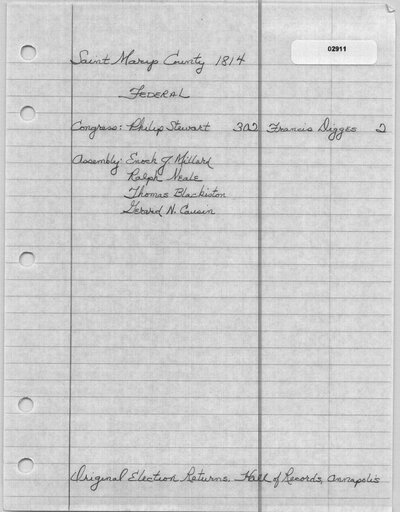 02911
2
Saint Marys County 1814
FEDERAL
Congress: Philip Stewart 302 Francis Digges 2
Assembly: Enoch J. Millard
Ralph Neale
Thomas Blackiston
Gerard N. Causin
Original Election Returns, Hall of Records, Annapolis